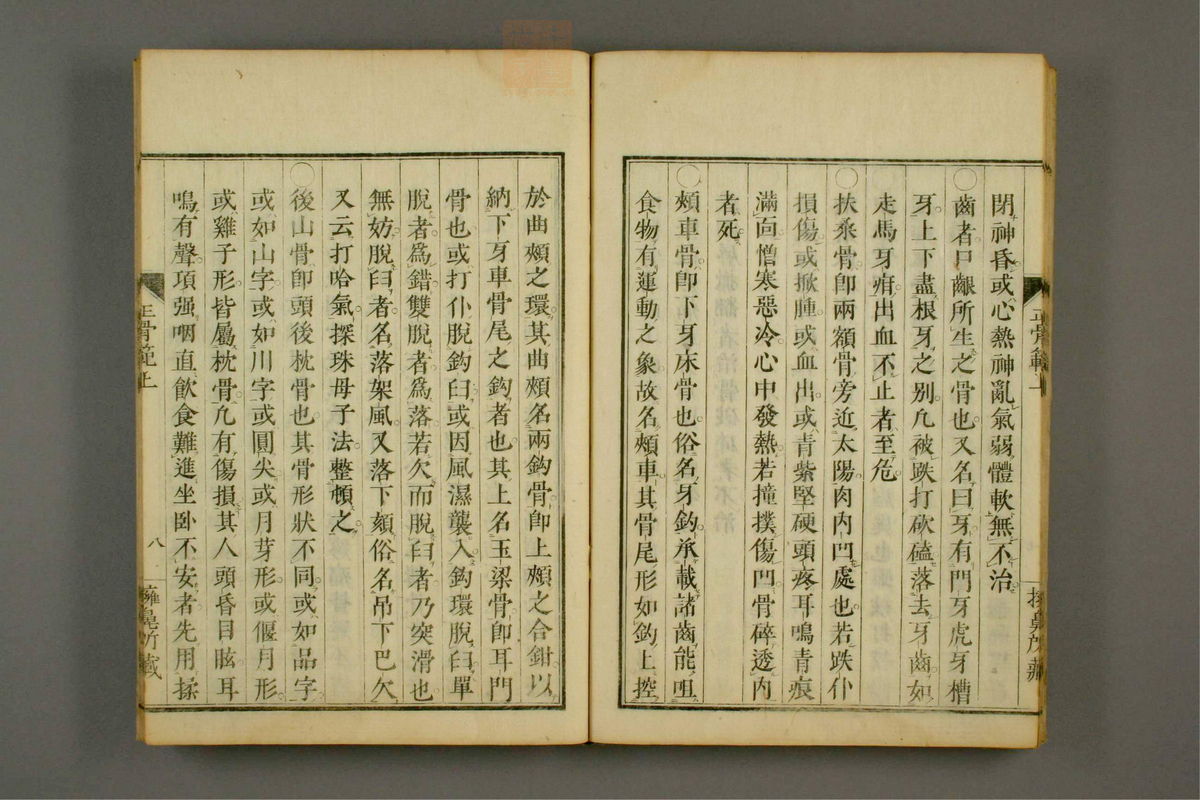 閉神昏或心熱神亂氣弱體軟無不治
〇齒者口齦所生之骨也又名曰牙有門牙虎牙槽
牙上下盡根牙之别凡被跌打砍磕落去牙齒如
走馬牙疳出血不止者至危
〇扶桑骨卽兩額骨旁近太陽肉内凹處也若跌仆
損傷或掀腫或血出或青紫堅硬頭疼耳鳴青痕
滿向憎寒惡冷心中發熱若撞撲傷凹骨碎透内
者死
〇頰車骨卽下牙床骨也俗名牙鈎承載諸齒能咀
食物有運動之象故名頰車其骨尾形如鈎上控
正骨範上
於曲頰之環其曲頰名兩鈎骨卽上頰之合鉗以
納下牙車骨尾之鈎者也其上名玉梁骨卽耳門
骨也或打仆脱鈎臼或因風濕襲入鈎環脱臼單
脱者爲錯雙脱者爲落若欠而脱臼者乃突滑也
無妨脱臼者名落架風又落下頦俗名吊下巴欠
又云打哈氣探珠母子法整頓之
〇後山骨卽頭後枕骨也其骨形狀不同或如品字
或如山字或如川字或圓尖或月芽形或偃月形
或雞子形皆屬枕骨凡有傷損其人頭昏目眩耳
鳴有聲項强咽直飲食難進坐卧不安者先用揉
正骨範上
八